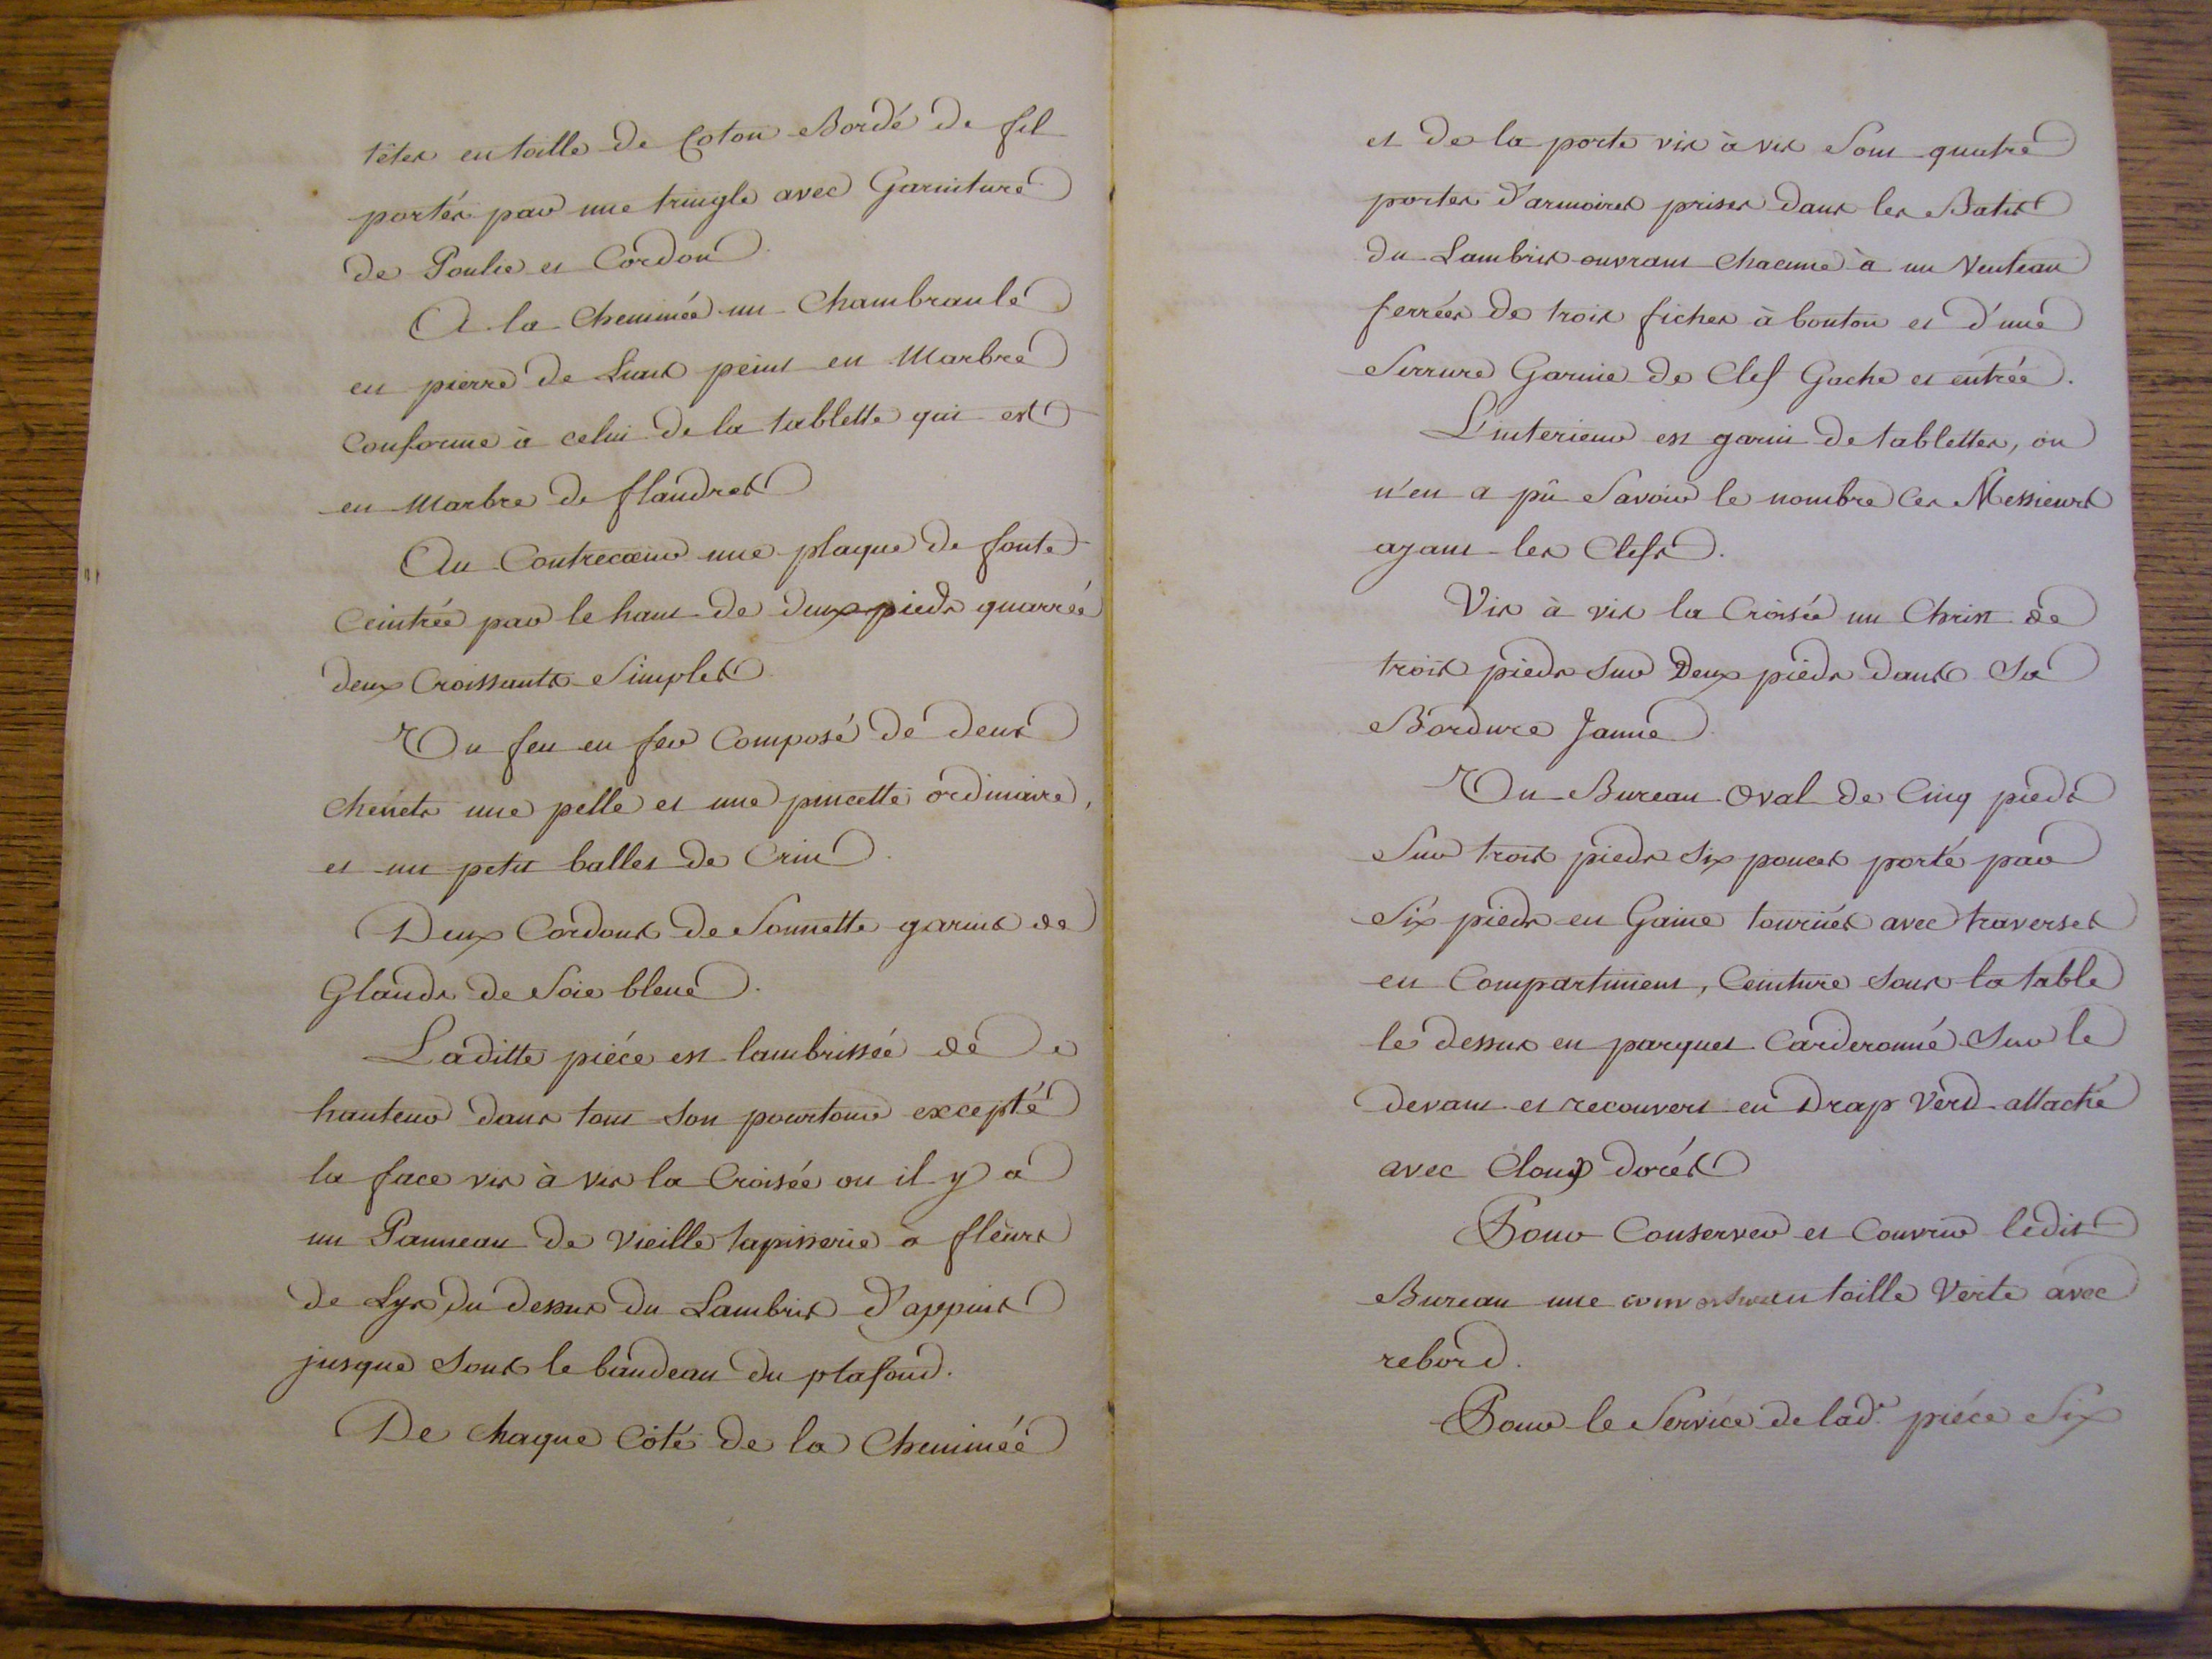 têtes en toille de Coton Bordé de fil
portés par une tringle avec Garniture
de Poulie et Cordon
A la Cheminée un Chambranle
en pierre de Liais peint en Marbre
Conforme à celui de la tablette qui est
en Marbre de flandres
Au Contrecœur une plaque de fonte
Ceintrée par le haut de deux pieds quarrée
deux Croissants Simples
Un feu en fer Composé de deux
chenets une pelle et une pincette ordinaire,
et un petit ballet de Crin
Deux Cordons de Sonnette garnis de
Glands de Soie bleue.
Laditte piéce est lambrissée de
hauteur dans tout son pourtour excepté
la face vis à vis la Croisée ou il y a
un Panneau de vieille tapisserie à fleurs
de Lys du dessus du Lambris d'appuis
jusque sous le bandeau du plafond.
De chaque Côté de la Cheminée
et de la porte vis à vis Sont quatre
portes d'armoires prises dans les Batis
du Lambris ouvrant chacune à un Venteau
ferrées de trois fiches à bouton et d'une
Serrure Garnie de Clef Gache et entrée.
L'interieur est garni de tablettes, on
n'en a pû Savoir le nombre Ces Messieurs
ayant les Clefs.
Vis à vis la Croisée un Christ de
trois pieds Sur Deux pieds dans Sa
Bordure Jaune
Un Bureau Oval de Cinq pieds
Sur trois pieds Six pouces porté par
Six pieds en Gaine tournés avec traverses
en Compartiment, Ceinture Sous la table
le dessus en parquet Carderonné Sur le
devant et recouvert en Drap Verd attaché
avec Cloux dorés
Pour Conserver et Couvrir ledit
Bureau une en toille Verte avec
rebord.
Pour le Service de lad.e piéce Six